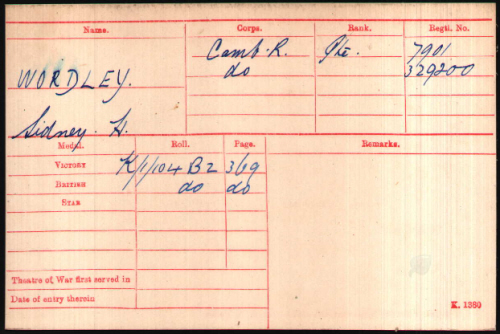 Name. Corps. Rank. Regtl. No.
WORDLEY. Camb. R. Pte. 7901
do 329200
Sidney. H.
Medal. Roll. Page. Remarks.
Victory K/1/104 B2 369
British do do
Star
Theatre of War first served in
Date of entry therein
K. 1380